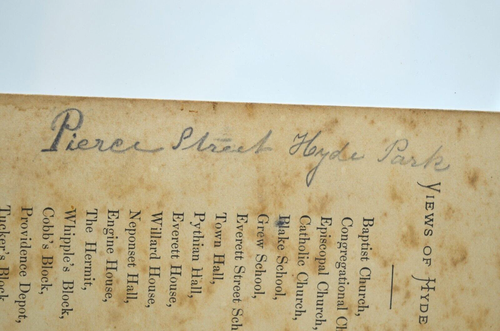 Pierce Street Hyde Park
VIEWS OF HYDE
Baptist Church,
Congregational
Episcopal Church,
Catholic Church,
Blake School,
Grew School,
Everett Street
Town Hall,
Pythian Hall,
Everett House,
Willard House,
Neponset Hall,
Engine House,
The Hermit,
Whipple's Block,
Cobb's Block,
Providence Depot,
Tucker's Block